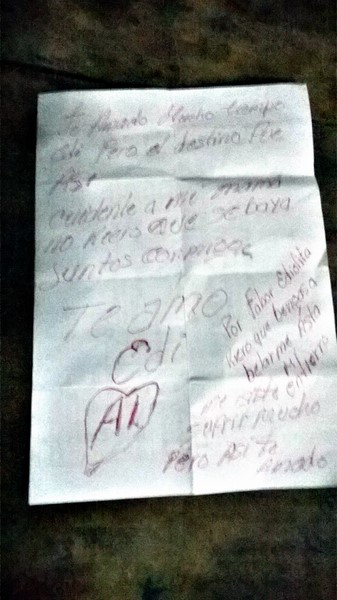 Mucho tiempo
Edi Pero el destino fue
Así
cuidente a mi mamá
no kiero que se baya
Juntos conmigo
Te amo
Edi
AL
Por Fabor Ediita
kiero que bengas a
belarme Asta
mi entierro
me isiste
sufrir mucho
Pero Así te
Amado